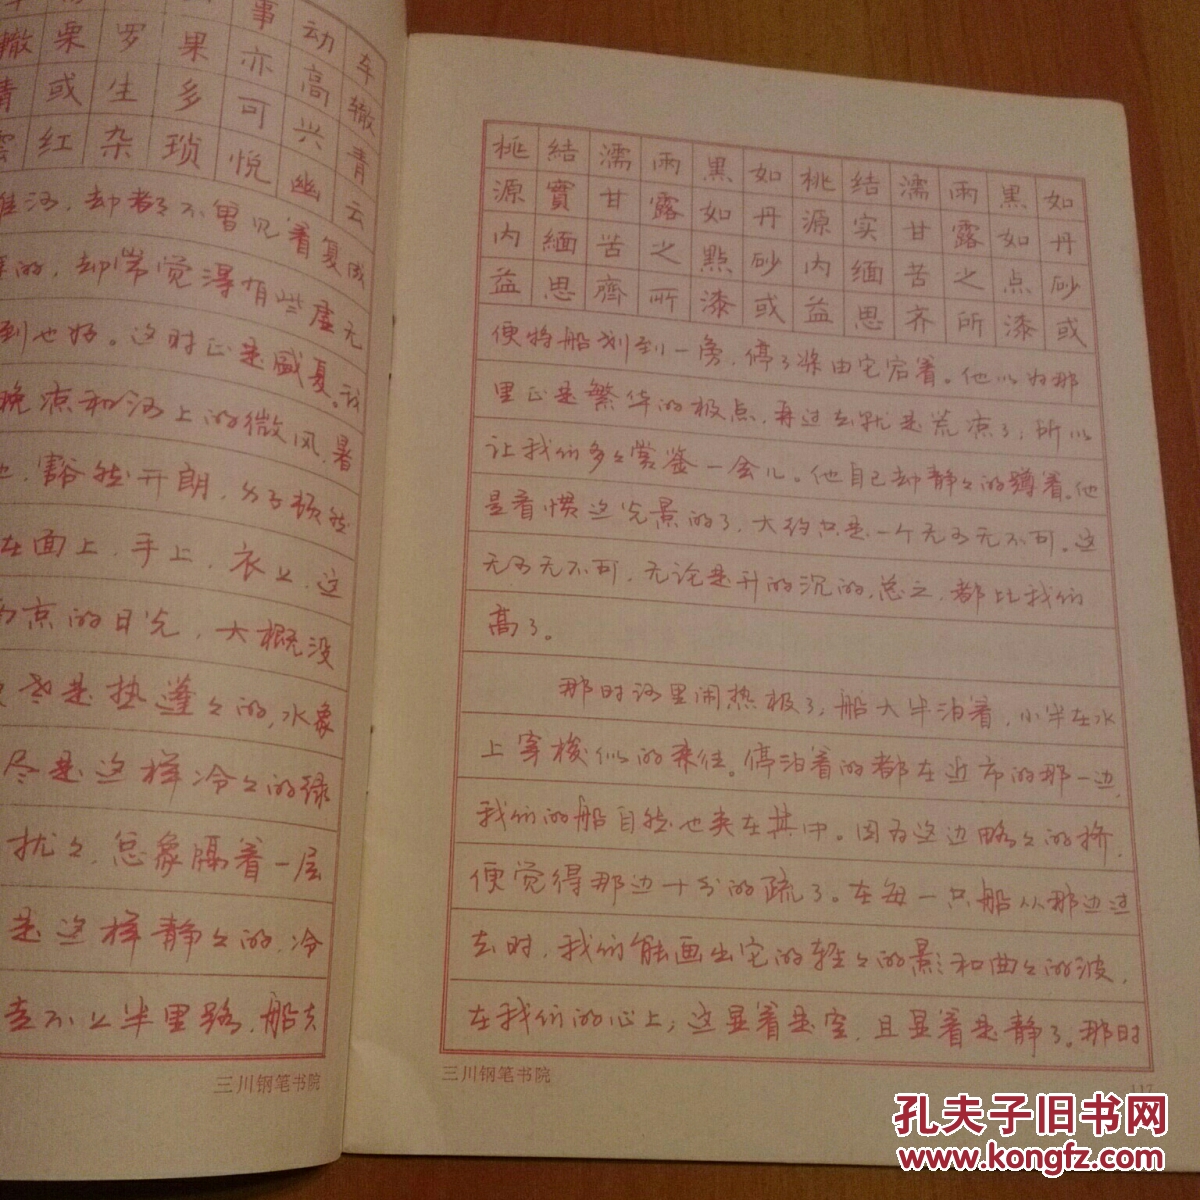 事 动 车
辙 栗 罗 果 亦 高 辙
青 或 生 多 可 兴 青
雲 红 杂 琐 悦 幽 云
淮河，却都不曾见着复成
的，却常觉得有些虚无
到也好。这时正是盛夏。我
晚凉和河上的微风，暑
豁然开朗，身子顿然
在面上，手上，衣上，这
南京的日光，大概没
是热蓬々的，水象
尽是这样冷々的绿
扰々，总象隔着一层
是这样静々的，冷
走不上半里路，船夫
三川钢笔书院
桃 結 濡 雨 黑 如 桃 结 濡 雨 黑 如
源 實 甘 露 如 丹 源 实 甘 露 如 丹
内 緬 苦 之 點 砂 内 缅 苦 之 点 砂
益 思 齊 所 漆 或 益 思 齐 所 漆 或
便将船划到一旁，停了桨由它宕着。他以为那
里正是繁华的极点，再过去就是荒凉了；所以
让我们多々赏鉴一会儿。他自己却静々的蹲着。他
是看惯这光景的了，大约只是一个无可无不可。这
无可无不可，无论是升的沉的，总之，都比我们
高了。
那时河里闹热极了；船大半泊着，小半在水
上穿梭似的来往。停泊着的都在近市的那一边，
我们的船自然也夹在其中。因为这边略々的挤，
便觉得那边十分的疏了。在每一只船从那边过
去时，我们能画出它的轻々的影和曲々的波，
在我们的心上；这显着是空，且显着是静了。那时
三川钢笔书院
117
孔夫子旧书网
www.kongfz.com